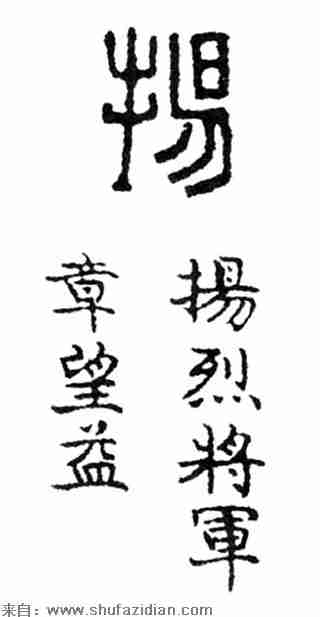 揚
揚烈將軍
章望益
来自：www.shufazidian.com